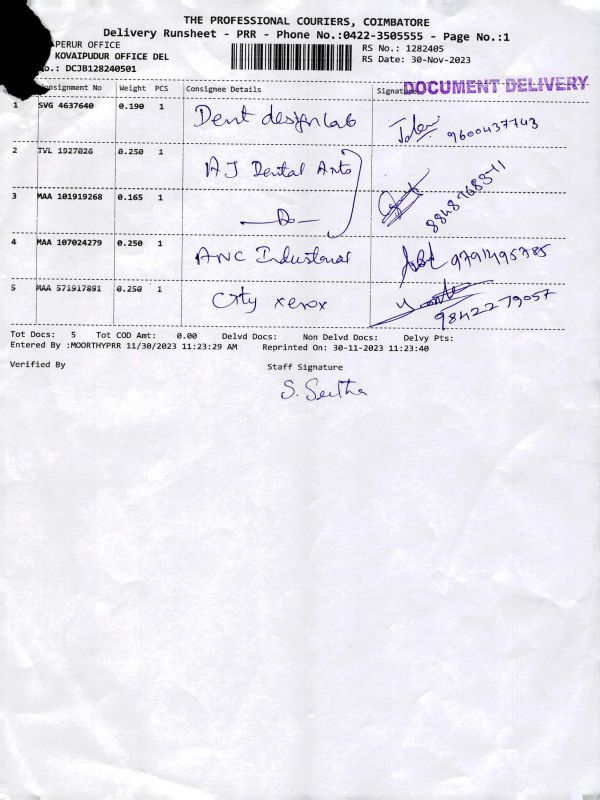 THE PROFESSIONAL COURIERS, COIMBATORE
Delivery Runsheet - PRR - Phone No.:0422-3505555 - Page No.:1
PERUR OFFICE
RS No.: 1282405
KOVAIPUDUR OFFICE DEL
RS Date: 30-Nov-2023
No.: DCJB128240501
Consignment No Weight PCS Consignee Details Signature
DOCUMENT DELIVERY
1 SVG 4637640 0.190 1 Dent design lab 9600437743
2 TVL 1927026 0.250 1 AJ Dental Arts
3 MAA 101919268 0.165 1 8848768371
4 MAA 107024279 0.250 1 ANC Industorial 9791495785
5 MAA 571917891 0.250 1 City xerox 9842279057
Tot Docs: 5 Tot COD Amt: 0.00 Delvd Docs: Non Delvd Docs: Delvy Pts:
Entered By :MOORTHYPRR 11/30/2023 11:23:29 AM Reprinted On: 30-11-2023 11:23:40
Verified By Staff Signature
S. Seetha